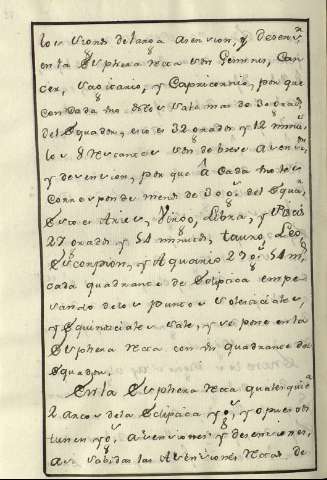 los signos de larga Asension, y desen.n
en la Esphera recta son Geminis, Can
cer, Sagitario, y Capricornio, porque
con cada uno de los sale mas de 30 grad.s
del Equador, esto es 32 grados y 12 minu.s
los 8 restantes son de breve asen.n
y desension, porque â cada uno les
corresponde menos de 30 g.s del Equa.r
esto es Aries, Virgo, Libra, y Picis
27 grados y 54 minutos, tauro, Leo
Escorpion, y Aquario 29 g.s 54 m.
cada quadrante de Ecliptica empe
sando de los puntos Solsticiales,
y Equinociales sale, y se pone en la
Esphera recta con un quadrante del
Equador.
En la Esphera recta qualesquie.a
2 Arcos de la Ecliptica yg.s, y opuestos
tienen yg.s asensiones y desensiones,
asi sabidas las Asensiones rectas de